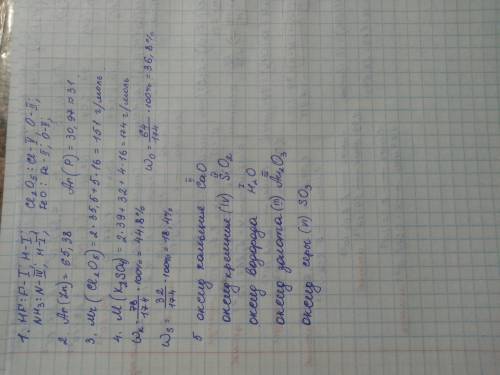 1. HF: F-I, H-I; Cl₂O₅: Cl-V, O-II;
NH₃: N-III, H-I; FeO: Fe-II, O-II;
2. Ar(Zn) = 65,38 Ar(P) = 30,97 ≈ 31
3. Mr (Cl₂O₅) = 2·35,5+5·16 = 151 г/моль
4. M (K₂SO₄) = 2·39+32+4·16=174 г/моль
Wк = 78/174 ·100% = 44,8% Wo = 64/174 ·100% = 36,8%
Ws = 32/174 ·100% = 18,4%
5 оксид кальция CaO
оксид кремния (IV) SiO₂
оксид водорода H₂O
оксид золота (III) Au₂O₃
оксид серы (VI) SO₃